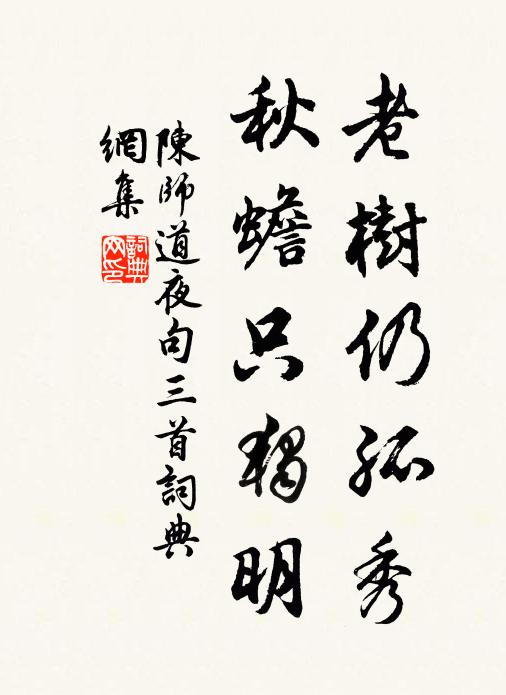 老樹仍孤秀
秋蟾只獨明
陳師道夜句三首詞典
網集
詞典
网印